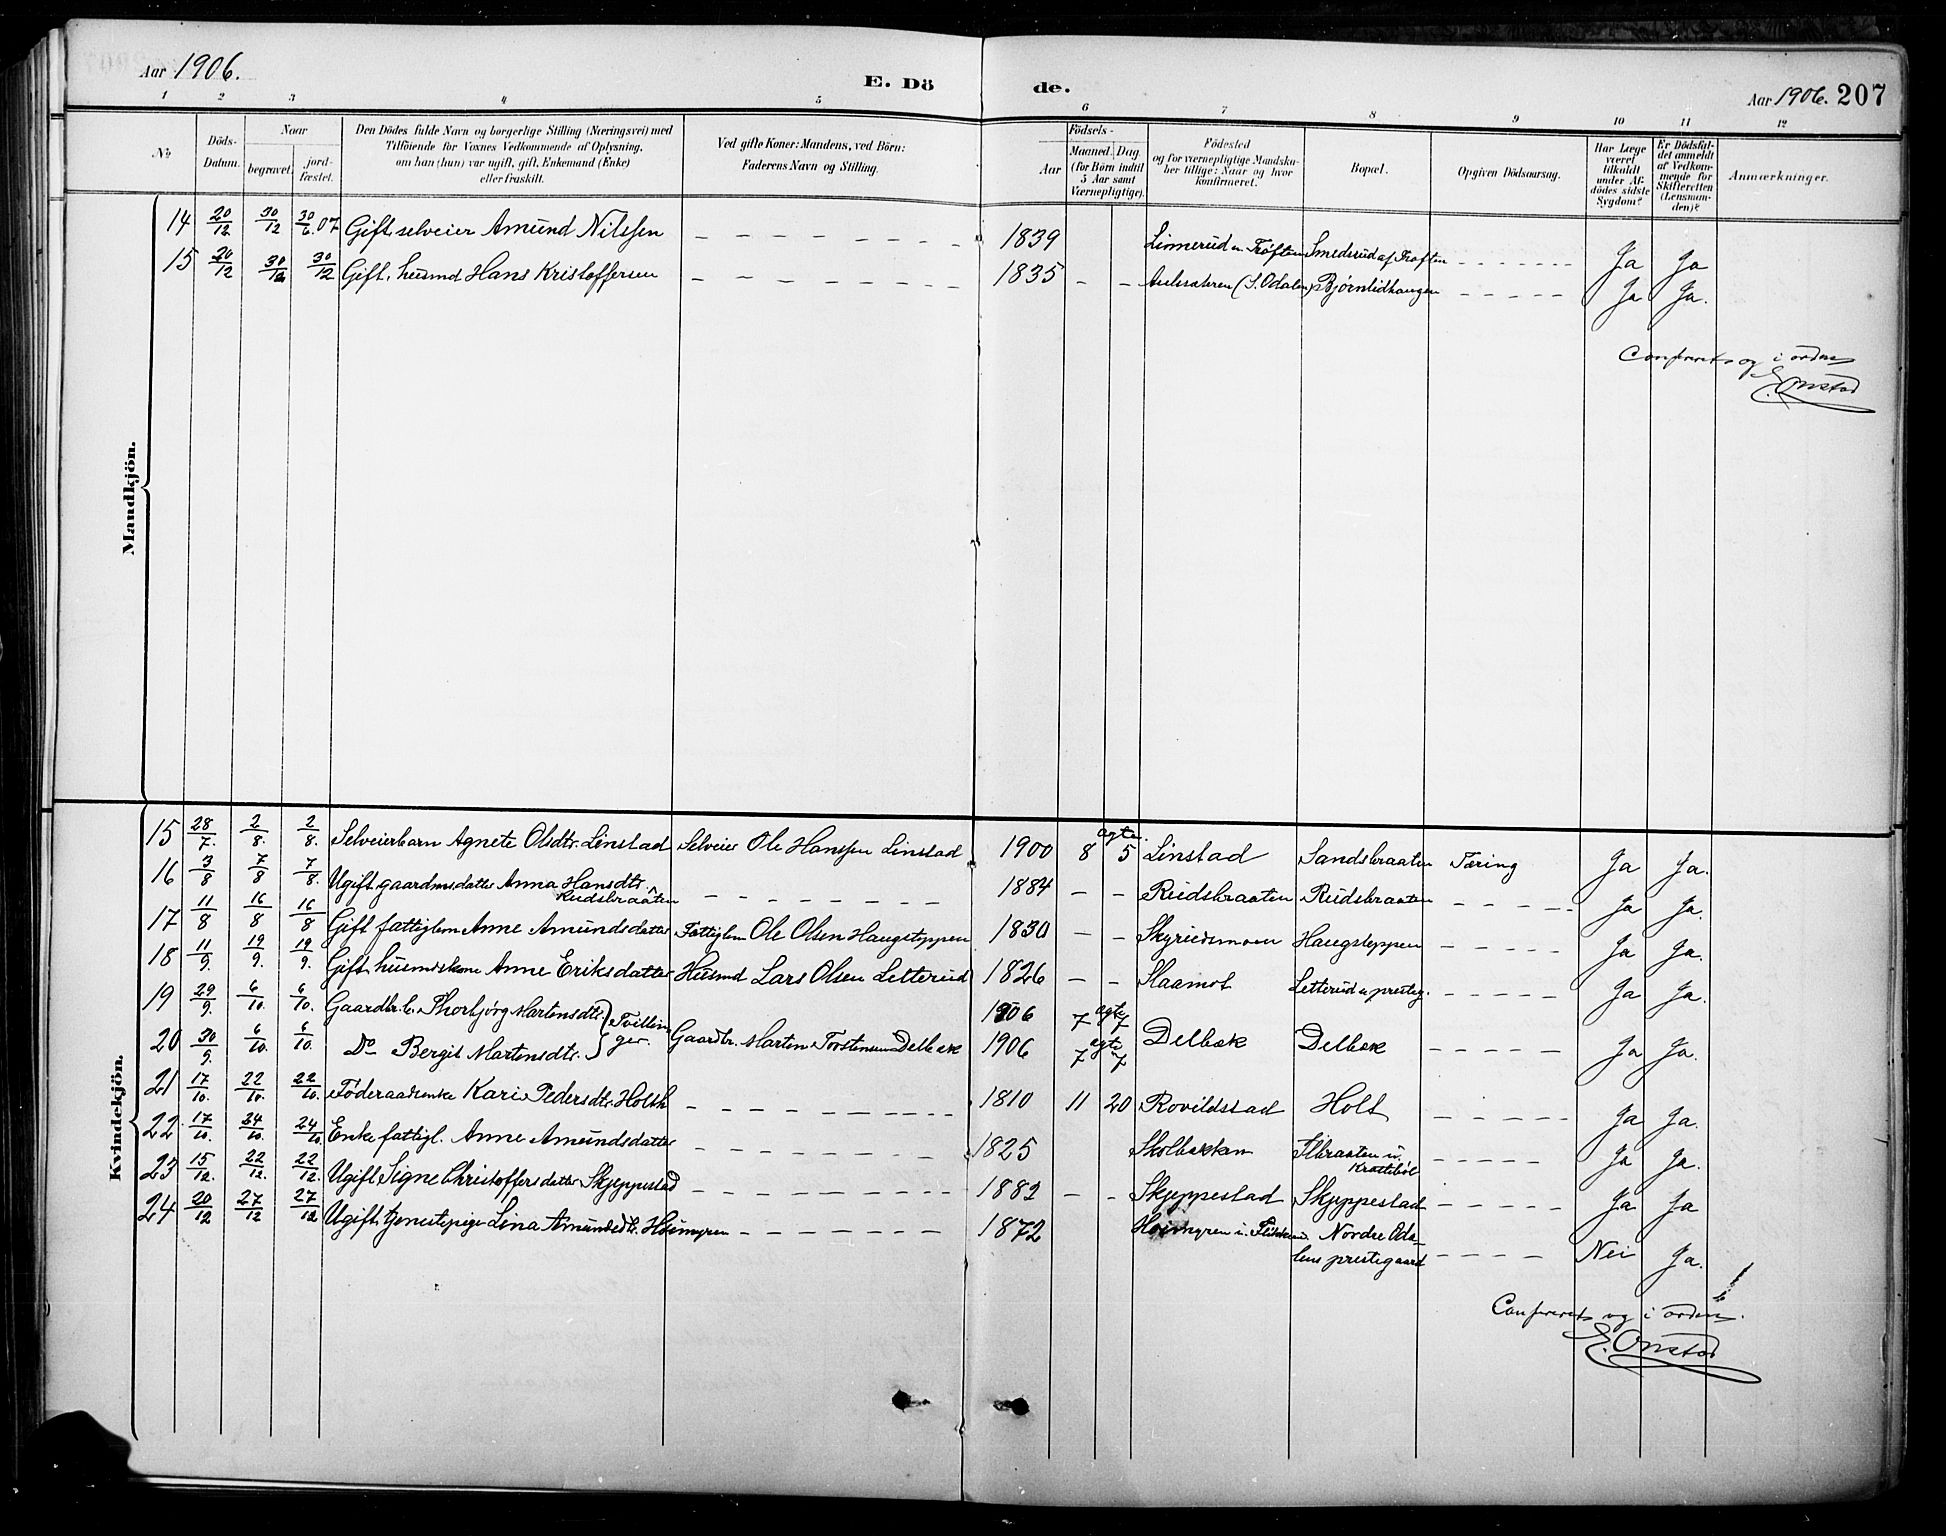 Aar 1906.
E. Dö de.
Aar 1906. 207
1 2 3 4 5 6 7 8 9 10 11 12
No
Döds-Datum.
Naar
begravet.
jord-fæstet.
Den Dödes fulde Navn og borgerlige Stilling (Næringsvei) med
Tilföiende for Voxnes Vedkommende af Oplysning,
om han (hun) var ugift, gift, Enkemand (Enke)
eller fraskilt.
Ved gifte Koner: Mandens, ved Börn:
Faderens Navn og Stilling.
Födsels-
Aar
Maaned. Dag
(for Börn indtil
5 Aar samt
Værnepligtige).
Födested
og for værnepligtige Mandska-
ber tillige: Naar og hvor
konfirmeret.
Bopæl.
Opgiven Dödsaarsag.
Har Læge
været
tilkaldt
under Af-
dödes sidste
Sygdom?
Er Dödsfal-
det anmeldt
af Vedkom-
mende for
Skifteretten
(Lensman-
den)?
Anmærkninger.
Mandkjön.
14 20/12 30/12 30/6.07 Gift, selveier Amund Nilssen 1839 Linnerud u. Trøften Smedsrud af Trøften Ja Ja
15 20/12 30/12 30/12 Gift, husmd Hans Kristoffersen 1835 (S. Odalen) Bjørnlidhaugen Ja Ja.
Confereret og i orden
E. Onstad
Kvindekjön.
15 28/7. 2/8. 2/8. Selveierbarn Agnete Olsdtr. Linstad Selveier Ole Hanssen Linstad 1900 8 agte. 5 Linstad Sandsbraaten Tæring Ja Ja.
16 3/8 7/8 7/8. Ugift gaardmsdatter Anna Hansdtr. Rudsbraaten 1884 Rudsbraaten Rudsbraaten Ja Ja.
17 11/8 16/8 16/8 Gift fattiglem Anne Amundsdatter Fattiglem Ole Olsen Haugsteppen 1830 Skyrudsmoen Haugsteppen Ja Ja.
18 11/9. 19/9. 19/9. Gift, husmdskone Anne Eriksdatter Husmd Lars Olsen Letterud 1826 Slaamot Letterud u. presteg. Ja Ja.
19 29/9. 6/10. 6/10. Gaardbr. b. Thorbjørg Martensdtr. Tvillin- 1906 7 agte 7
20 30/9. 6/10. 6/10. Do Bergit Martensdtr. ger. Gaardbr. Marten Torstensen Delbæk 1906 7 agte 7 Delbæk Delbæk Ja Ja.
21 17/10. 22/10. 22/10. Føderaadsenke Kari Pedersdtr. Holth 1810 11 20 Rovildstad Holt Ja Ja.
22. 17/10. 24/10. 24/10. Enke fattigl. Anne Amundsdatter 1825 Skolbækken Ilbraaten u. Ja Ja.
23 15/12. 22/12. 22/12. Ugift, Signe Christoffersdatter Skjeppestad 1882 Skjeppestad Skjeppestad Ja Ja
24 20/12 27/12 27/12 Ugift, tjenestepige Lina Amundsdtr. Høimyren 1872 Høimyren u. Nordre Oda-
lens prestegaard Nei Ja.
Confereret og i orden.
E. Onstad